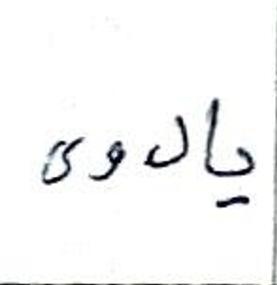 یالدوی